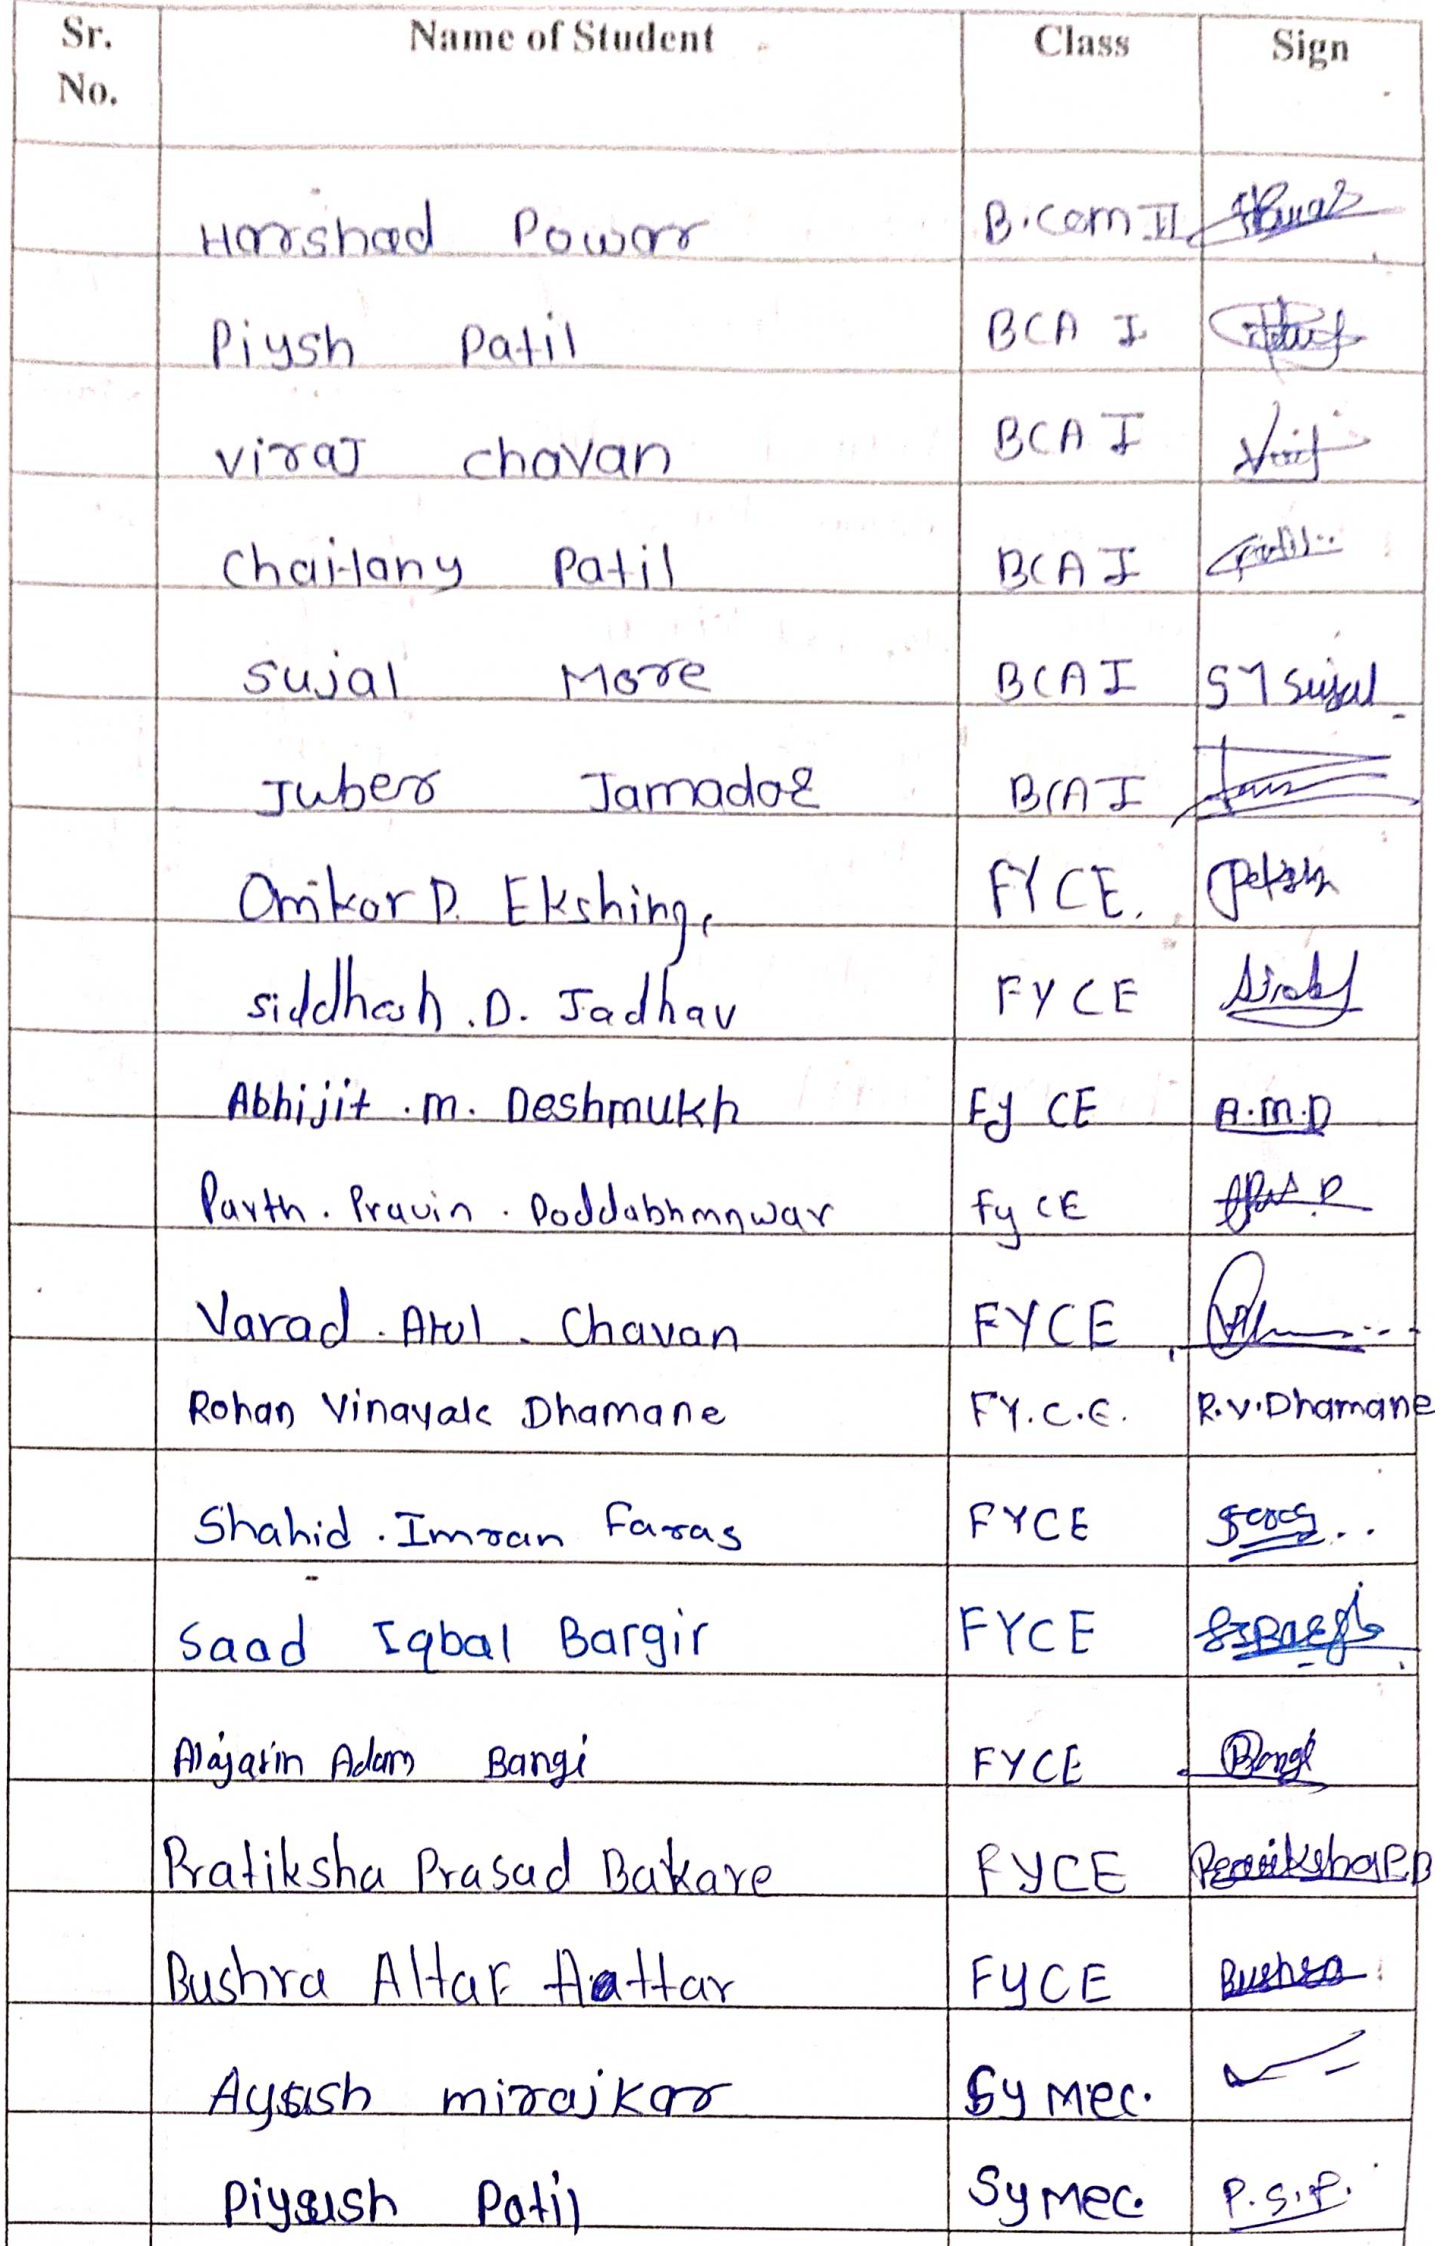 Sr. No. Name of Student Class Sign
Harshad Powar B.com II
Piysh Patil BCA I
Viraj chavan BCA I
Chaitany Patil BCA I
Sujal More BCA I SM Sujal
Juber Jamadar BCA I
Omkar D. Ekshinge FYCE.
Siddhesh .D. Jadhav FYCE
Abhijit .m. Deshmukh Fy CE A.M.D
Parth . Pravin . Doddabhmnwar Fy CE
Varad . Atul . Chavan FYCE
Rohan Vinayak Dhamane FY.C.E. R.V.Dhamane
Shahid . Imran Faras FYCE
Saad Iqbal Bargir FYCE
Adam Bangi FYCE Bangi
Pratiksha Prasad Bakare FYCE
Bushra Altaf Attar FYCE Bushra
Ayush mirajkar Sy Mec.
Piyush Patil Sy Mec. P.S.P.